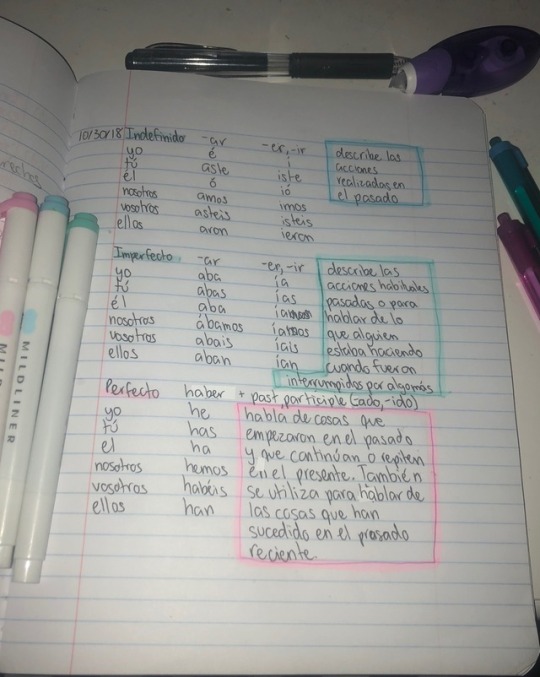 10/30/18 Indefinido -ar -er,-ir
yo é í
tú aste iste
él ó ió
nosotros amos imos
vosotros asteis isteis
ellos aron ieron
describe las
acciones
realizadas en
el pasado
Imperfecto -ar -er,-ir
yo aba ía
tú abas ías
él aba ía
nosotros ábamos íamos
vosotros abais íais
ellos aban ían
describe las
acciones habituales
pasadas o para
hablar de lo
que alguien
estaba haciendo
cuando fueron
interrumpidos por algo más
Perfecto haber + past participle (-ado,-ido)
yo he
tú has
el ha
nosotros hemos
vosotros habéis
ellos han
habla de cosas que
empezaron en el pasado
y que continúan o repiten
en el presente. También
se utiliza para hablar de
las cosas que han
sucedido en el prasado
reciente.
MILDLINER